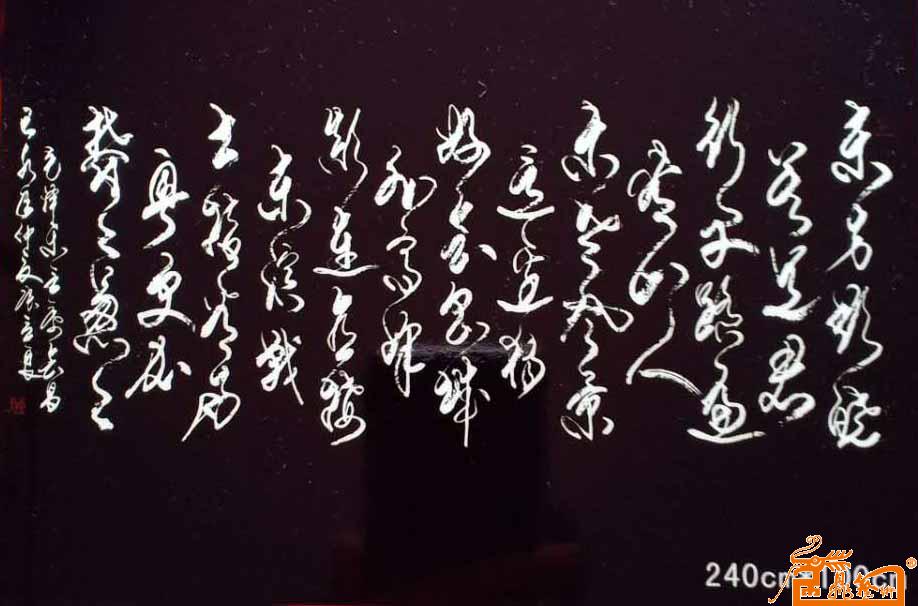 东方欲晓
莫道君
行早踏遍
青山人
未老风景
这边独
好会昌城
外高峰
颠连直接
东溟战
士指看南
粤更加
郁郁葱葱
毛泽东清平乐会昌
年仲夏
240cm*100cm